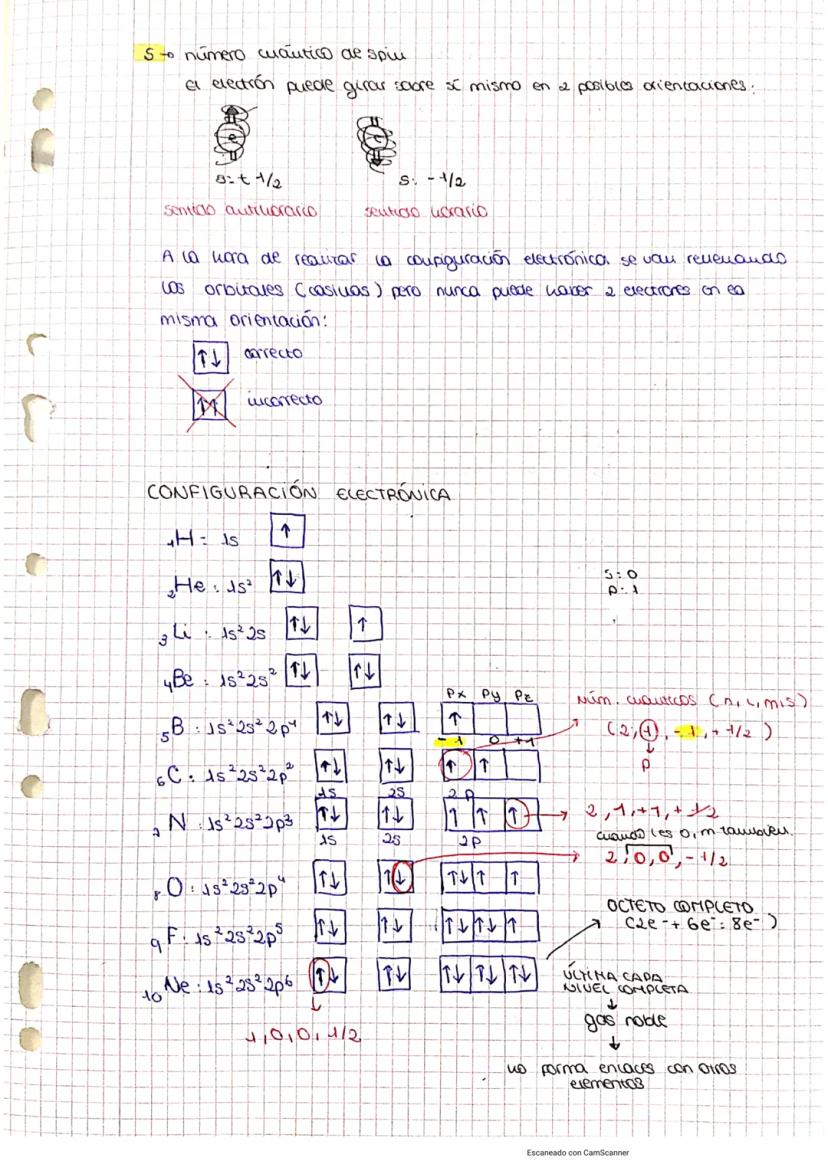 S → número cuántico de spin
el electrón puede girar sobre sí mismo en 2 posibles orientaciones:
e e
s: + 1/2 s: - 1/2
sentido antihorario sentido horario
A la hora de realizar la configuración electrónica se van rellenando
los orbitales (casillas) pero nunca puede haber 2 electrones en la
misma orientación:
↑↓ correcto
↑↑ incorrecto
CONFIGURACIÓN ELECTRÓNICA
₁H = 1s ↑
₂He : 1s² ↑↓
s: 0
p: 1
₃Li : 1s²2s ↑↓ ↑
₄Be : 1s²2s² ↑↓ ↑↓
Px Py Pz
Núm. cuánticos (n, l, m, s)
₅B : 1s²2s²2p¹ ↑↓ ↑↓ ↑
(2, 1, -1, + 1/2)
-1 0 +1
p
₆C : 1s²2s²2p² ↑↓ ↑↓ ↑ ↑
1s 2s 2p
₇N : 1s²2s²2p³ ↑↓ ↑↓ ↑ ↑ ↑ → 2, 1, +1, + 1/2
1s 2s 2p
cuando l es 0, m también.
2, 0, 0, - 1/2
₈O : 1s²2s²2p⁴ ↑↓ ↑↓ ↑↓ ↑ ↑
OCTETO COMPLETO
(2e⁻ + 6e⁻: 8e⁻)
₉F : 1s²2s²2p⁵ ↑↓ ↑↓ ↑↓ ↑↓ ↑
₁₀Ne : 1s²2s²2p⁶ ↑↓ ↑↓ ↑↓ ↑↓ ↑↓
ÚLTIMA CAPA
NIVEL COMPLETA
↓
gas noble
1, 0, 0, 1/2
↓
no forma enlaces con otros
elementos
Escaneado con CamScanner